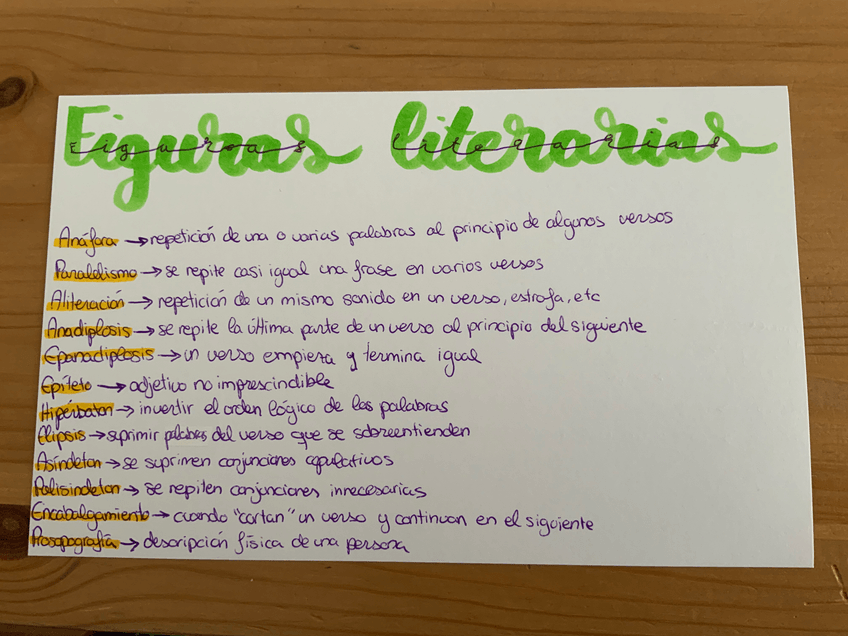 Figuras literarias
Figuras literarias
Anáfora → repetición de una o varias palabras al principio de algunos versos
Paralelismo → se repite casi igual una frase en varios versos
Aliteración → repetición de un mismo sonido en un verso, estrofa, etc
Anadiplosis → se repite la última parte de un verso al principio del siguiente
Epanadiplosis → un verso empieza y termina igual
Epíteto → adjetivo no imprescindible
Hipérbaton → invertir el orden lógico de las palabras
Elipsis → suprimir palabras del verso que se sobreentienden
Asíndeton → se suprimen conjunciones copulativos
Polisíndeton → se repiten conjunciones innecesarias
Encabalgamiento → cuando "cortan" un verso y continuan en el siguiente
Prosopografía → descripción física de una persona